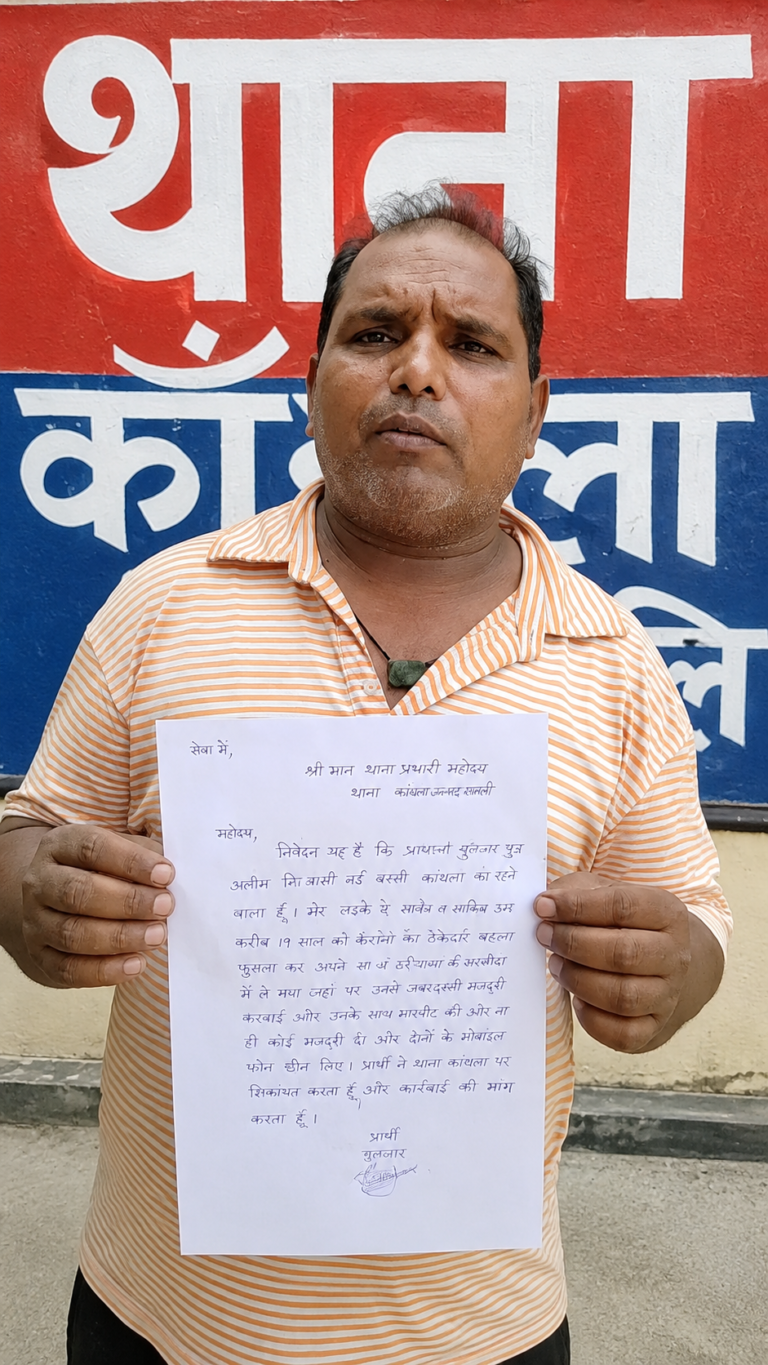 थाना
काँ ला
लि
सेवा में,
श्री मान थाना प्रभारी महोदय
थाना कांधला जनपद शामली
महोदय,
निवेदन यह है कि प्रार्थी गुलजार पुत्र
अलीम निवासी नई बस्सी कांधला का रहने
वाला हूँ। मेर लड़के व साकिब उम्र
करीब 19 साल को कैरानो का ठेकेदार बहला
फुसला कर अपने के
में ले गया जहां पर उनसे जबरदस्सी मजदुरी
करवाई और उनके साथ मारपीट की ओर ना
ही कोई मजदुरी दी और दोनों के मोबाइल
फोन छीन लिए। प्रार्थी ने थाना कांधला पर
सिकायत करता हूँ और कार्रवाई की मांग
करता हूँ।
प्रार्थी
गुलजार